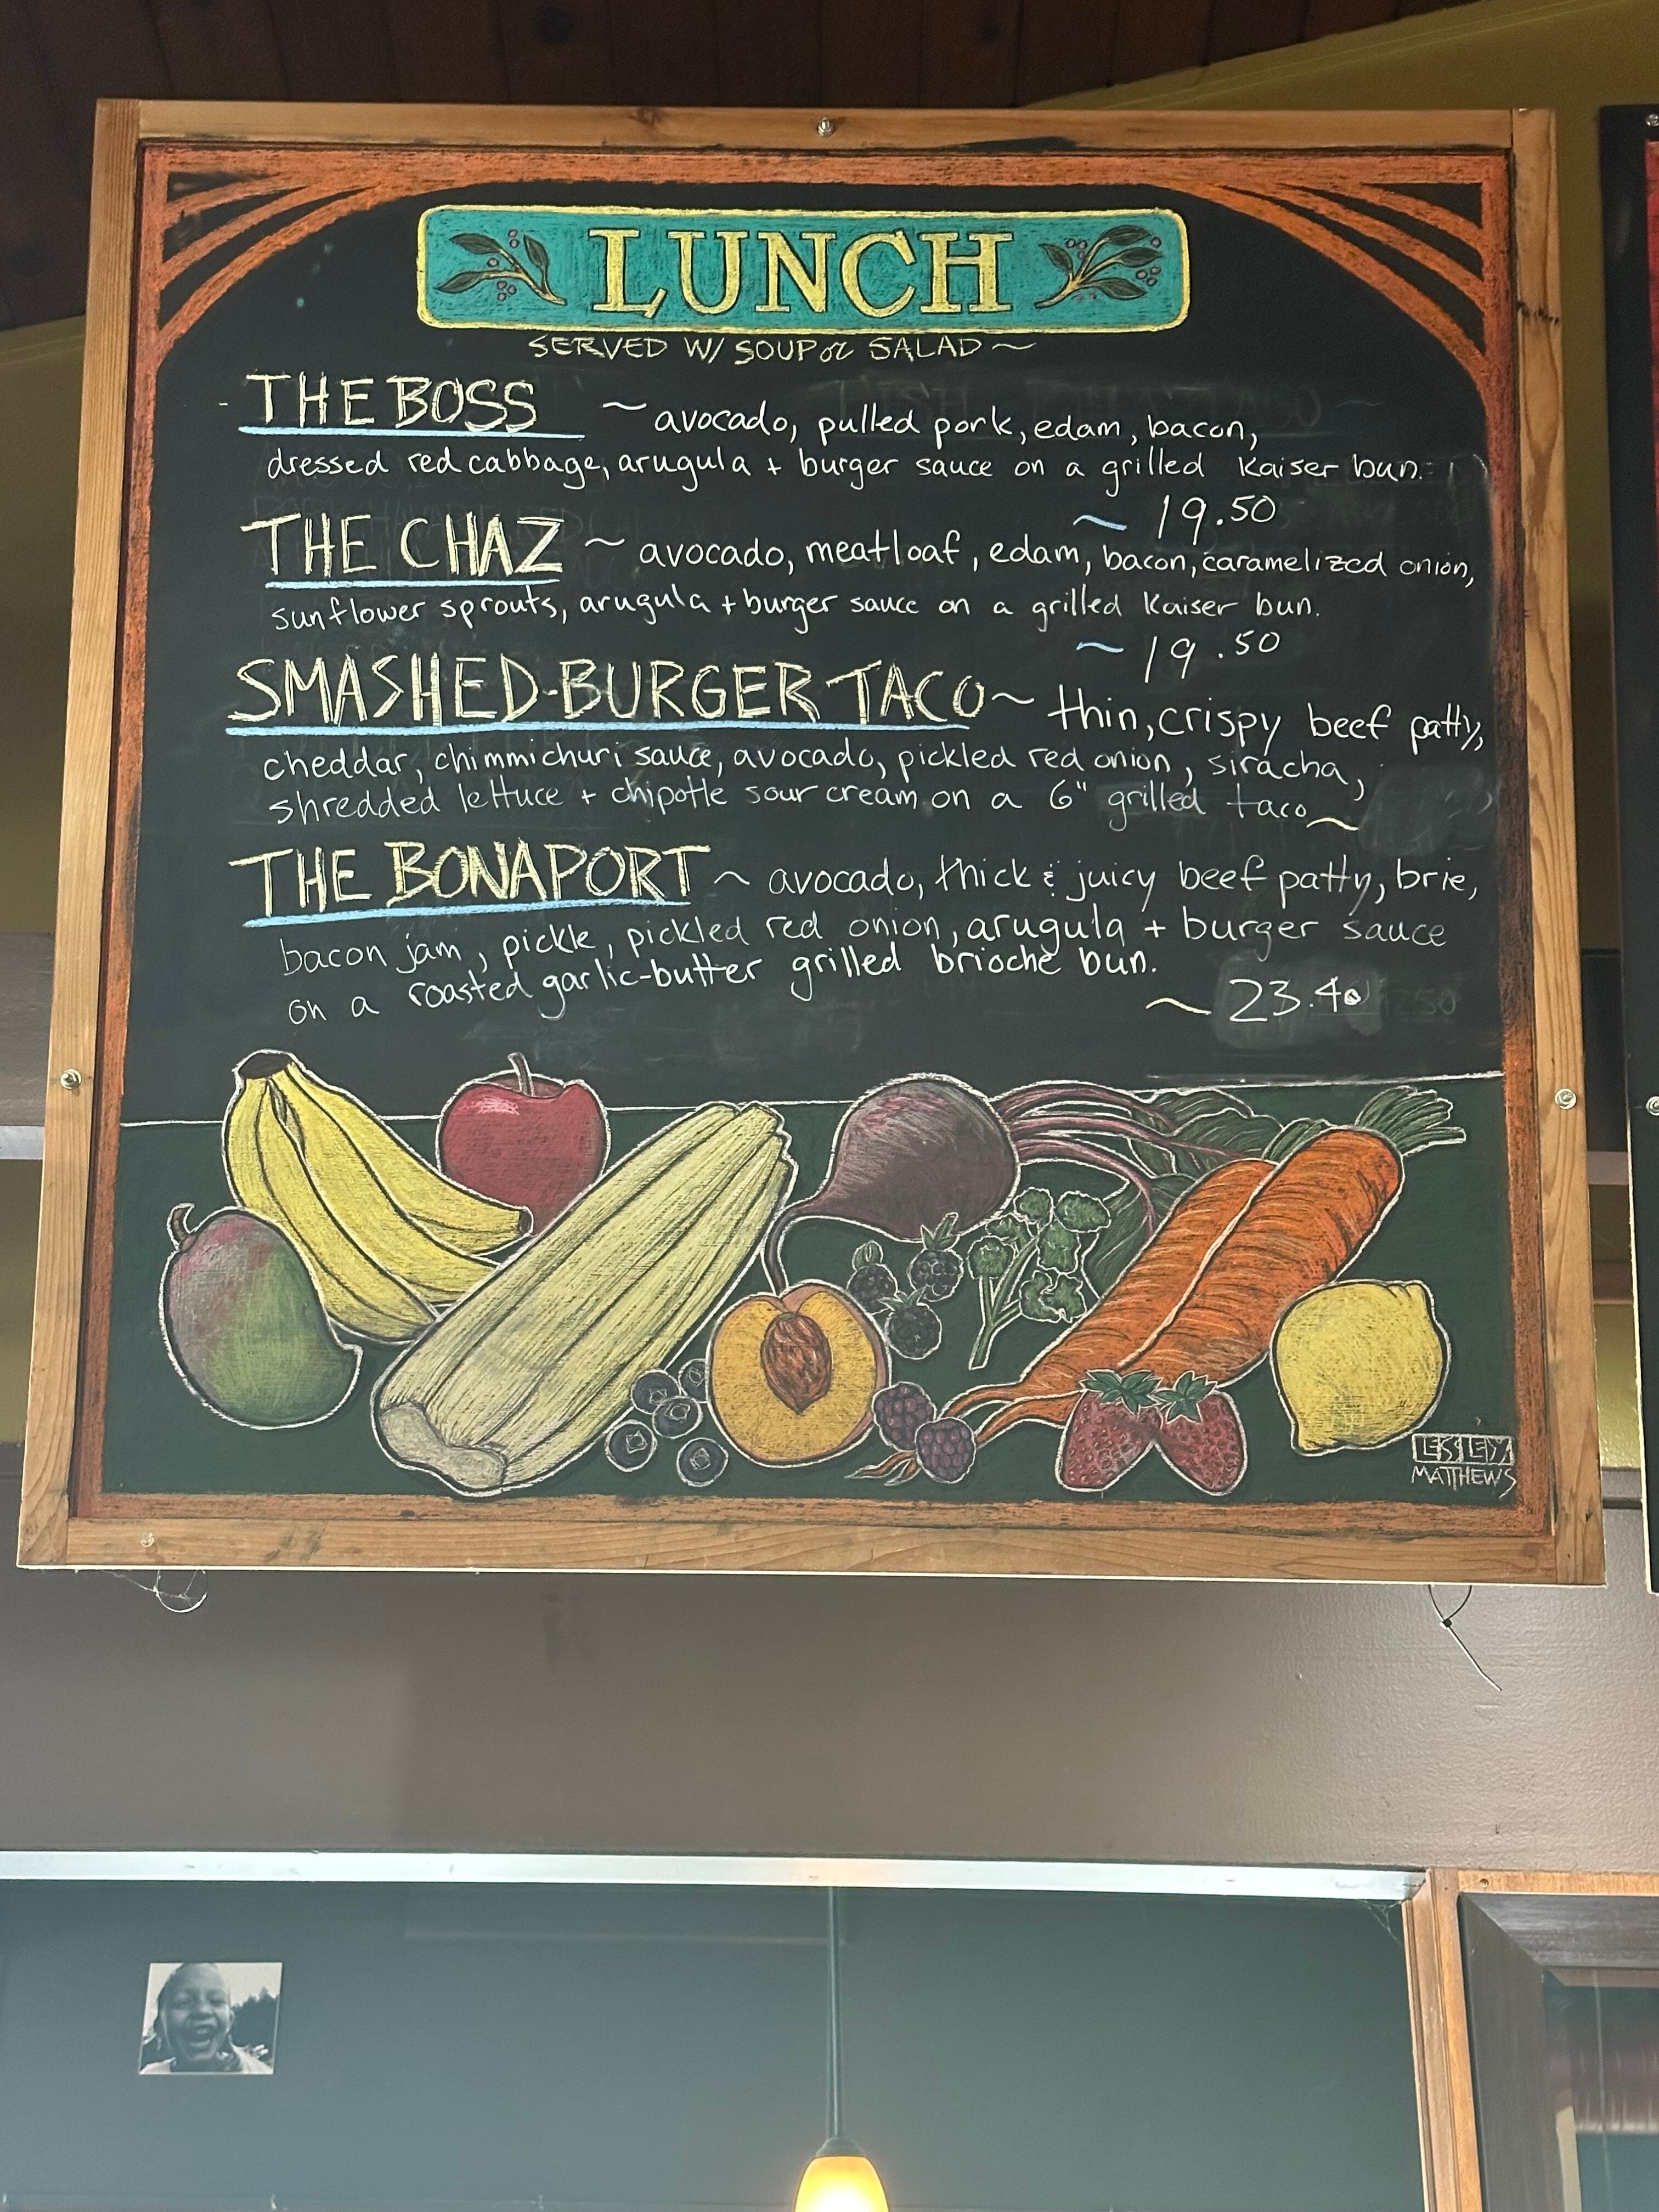 LUNCH
SERVED W/ SOUP or SALAD ~
- THE BOSS ~ avocado, pulled pork, edam, bacon,
dressed red cabbage, arugula + burger sauce on a grilled Kaiser bun.
~ 19.50
THE CHAZ ~ avocado, meatloaf, edam, bacon, caramelized onion,
sunflower sprouts, arugula + burger sauce on a grilled Kaiser bun.
~ 19.50
SMASHED-BURGER TACO ~ thin, crispy beef patty,
cheddar, chimmichuri sauce, avocado, pickled red onion, siracha,
shredded lettuce + chipotle sour cream on a 6" grilled taco ~
THE BONAPORT ~ avocado, thick & juicy beef patty, brie,
bacon jam, pickle, pickled red onion, arugula + burger sauce
on a roasted garlic-butter grilled brioche bun.
~ 23.40
LESLEY
MATTHEWS